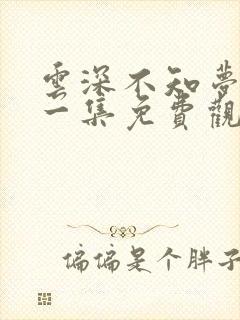 雲深不知夢
一集免費觀
偏偏是个胖子